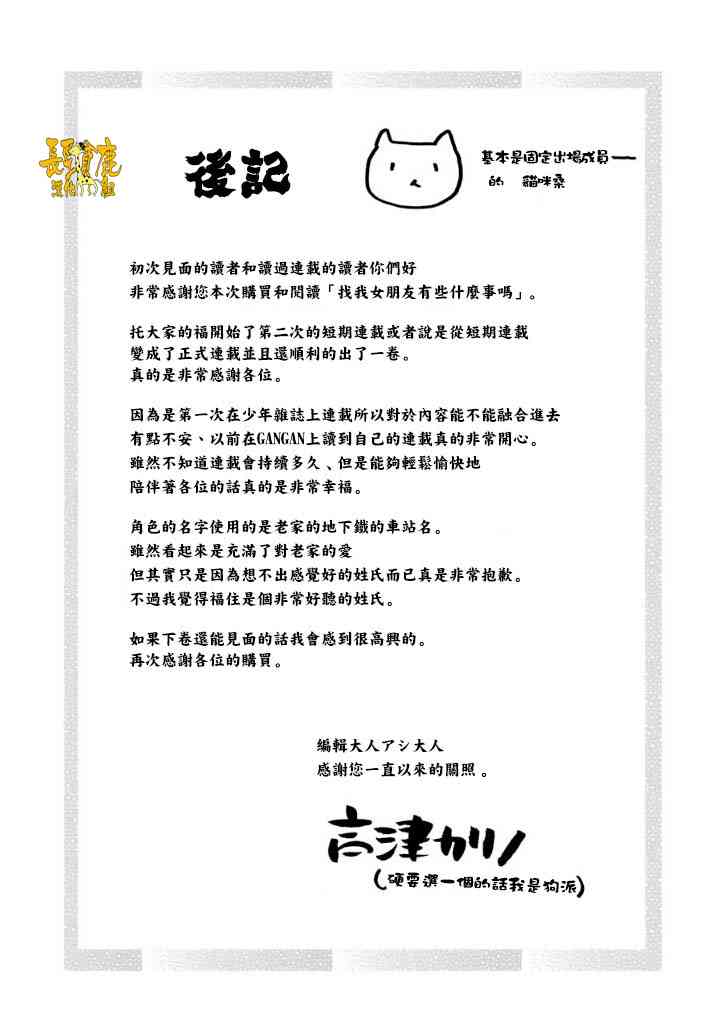 後記
基本是固定出場成員一
的 貓咪桑
初次見面的讀者和讀過連載的讀者你們好
非常感謝您本次購買和閱讀「找我女朋友有些什麼事嗎」。
托大家的福開始了第二次的短期連載或者說是從短期連載
變成了正式連載並且還順利的出了一卷。
真的是非常感謝各位。
因為是第一次在少年雜誌上連載所以對於內容能不能融合進去
有點不安、以前在GANGAN上讀到自己的連載真的非常開心。
雖然不知道連載會持續多久、但是能夠輕鬆愉快地
陪伴著各位的話真的是非常幸福。
角色的名字使用的是老家的地下鐵的車站名。
雖然看起來是充滿了對老家的愛
但其實只是因為想不出感覺好的姓氏而已真是非常抱歉。
不過我覺得福住是個非常好聽的姓氏。
如果下卷還能見面的話我會感到很高興的。
再次感謝各位的購買。
編輯大人アシ大人
感謝您一直以來的關照。
高津カリノ
(硬要選一個的話我是狗派)